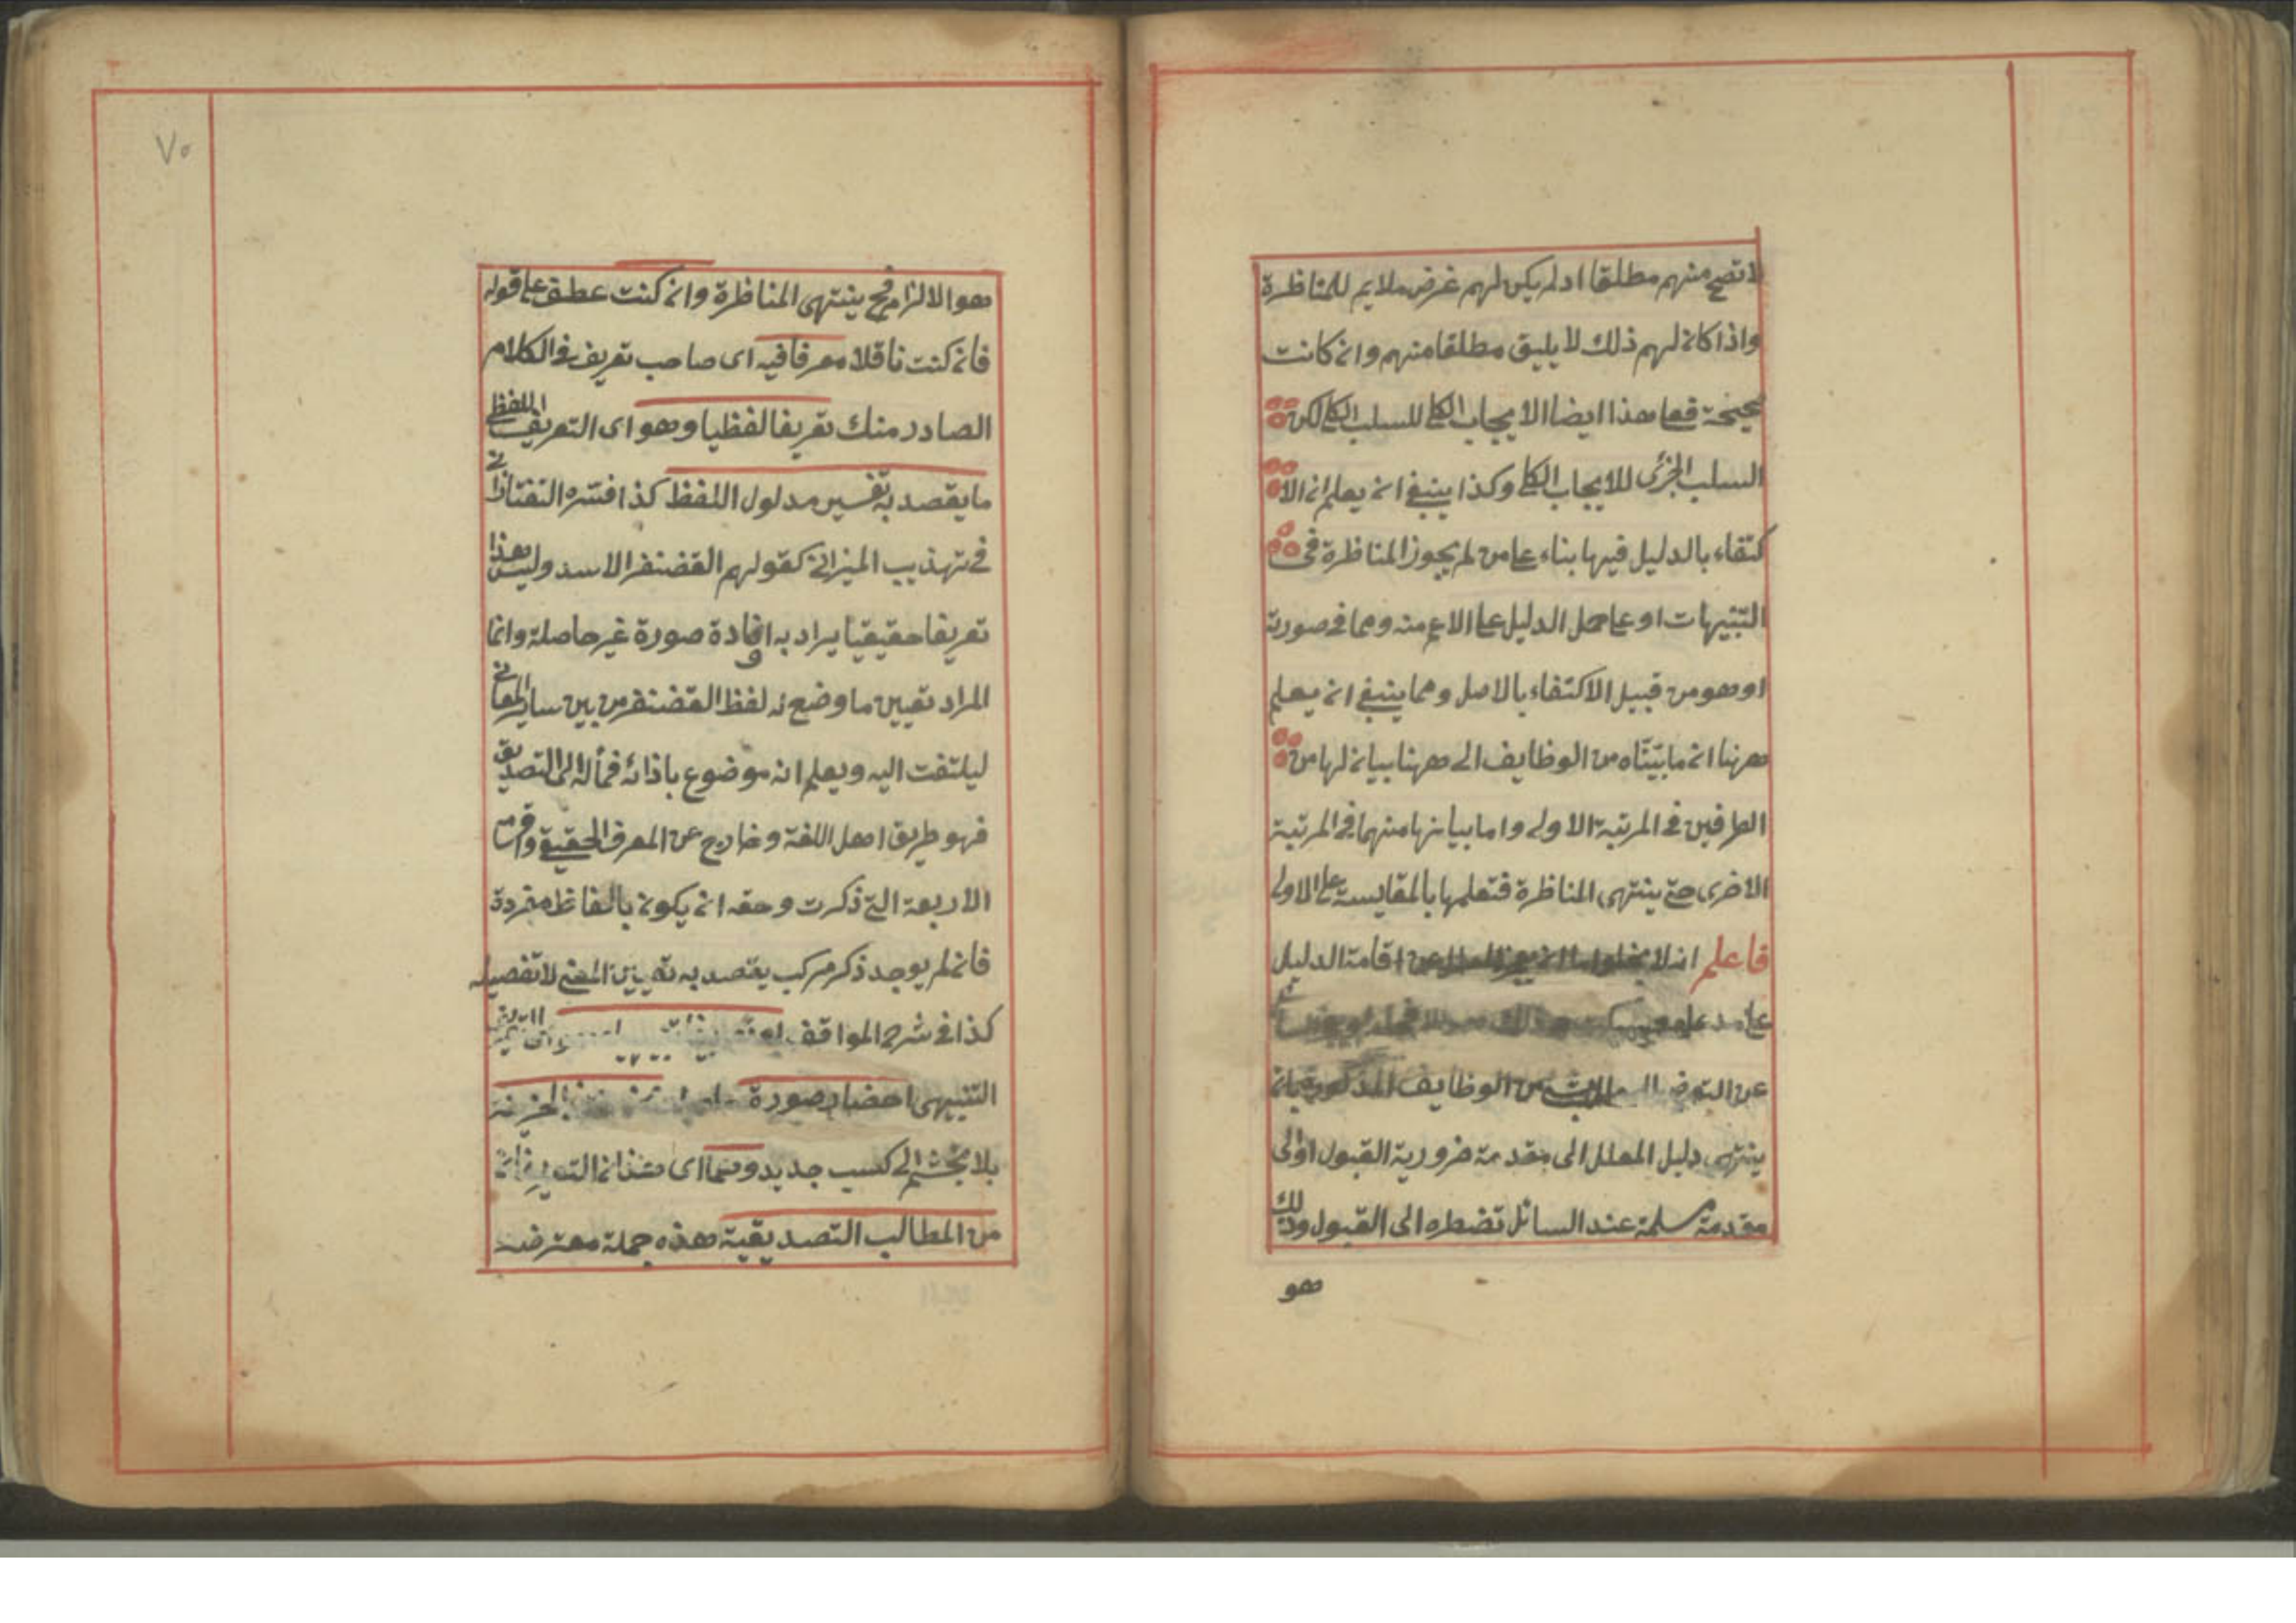 لا تصح منهم مطلقا اد لم يكن لهم غرض ملايم للمناظرة
واذا كان لهم ذلك لا يليق مطلقا منهم وان كانت
هذا ايضا الايجاب الكلي للسلب الكلي لكن
السلب الجزئ للايجاب الكلي وكذا ينبغي ان يعلم ان الا
كتفاء بالدليل فيها بناء على من لم يجوز المناظرة في
التنبيهات او على حمل الدليل على الاعم منه ومما في صورته
او هو من قبيل الاكتفاء بالاصل ومما ينبغي ان يعلم
ههنا ان ما بيّنّاه من الوظايف الى ههنا بيان لها من
الطرفين في المرتبة الاولى واما بيانها منهما في المرتبة
الاخرى حتى ينتهى المناظرة فتعلمها بالمقايسة على الاولى
فاعلم انه لا يخلوا اقامة الدليل
على
عن من الوظايف المذكورة بان
ينتهى دليل المعلل الى مقدمة ضرورية القبول او الى
مقدمة مسلمة عند السائل تضطره الى القبول وذلك
هو
٧٥
هو الالزام فح ينتهى المناظرة وان كنت عطف على قوله
فان كنت ناقلا معرفا فيه اى صاحب تعريف في الكلام
الصادر منك تعريفا لفظيا وهو اى التعريف اللفظي
ما يقصد به تفسير مدلول اللفظ كذا فسّره التفتازاني
في تهذيب الميزان كقولهم الغضنفر الاسد وليس هذا
تعريفا حقيقيا يراد به افادة صورة غير حاصلة وانما
المراد تعيين ما وضع له لفظ الغضنفر من بين ساير المعاني
ليلتفت اليه ويعلم انه موضوع باذائه فمأله الى التصديق
فهو طريق اهل اللغة وخارج عن المعرف الحقيقي واقسامه
الاربعة التي ذكرت وحقه ان يكون بالفاظ مفردة
فان لم يوجد ذكر مركب يقصد به تعيين المعنى لا تفصيله
كذا في شرح المواقف
التنبيهى احضار صورة
بلا تجشم الى كسب جديد وهما اى هذان التعريفان
من المطالب التصديقية هذه جملة معترضة